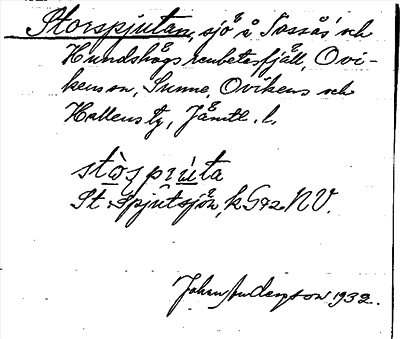 Storspjutan, sjö å Tossås och
Hundshögs renbetesfjäll, Ovi-
kens sn, Sunne, Ovikens och
Hallens tg, Jämtl. l.
St. Spjutsjön, k 592 NV.
Johan Anderzson 1932.